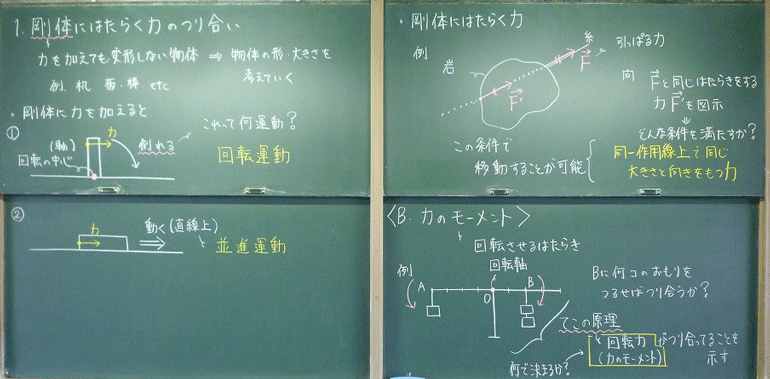 1. 剛体にはたらく力のつり合い
力を加えても変形しない物体 ⇒ 物体の形・大きさを
考えていく
例. 机、箱、棒、etc
・剛体に力を加えると
①
(軸)
回転の中心
力
倒れる
これって何運動?
回転運動
②
力
動く(直線上)
並進運動
・剛体にはたらく力
例
岩
糸
F
引っぱる力
F'
問 Fと同じはたらきをする
力F'を図示
どんな条件を満たすか?
この条件で
移動することが可能
同一作用線上で同じ
大きさと向きをもつ力
<B. 力のモーメント>
回転させるはたらき
例
回転軸
A
O
B
Bに何コのおもりを
つるせばつり合うか?
てこの原理
何で決まるか?
回転力
(力のモーメント)
がつり合ってることを
示す